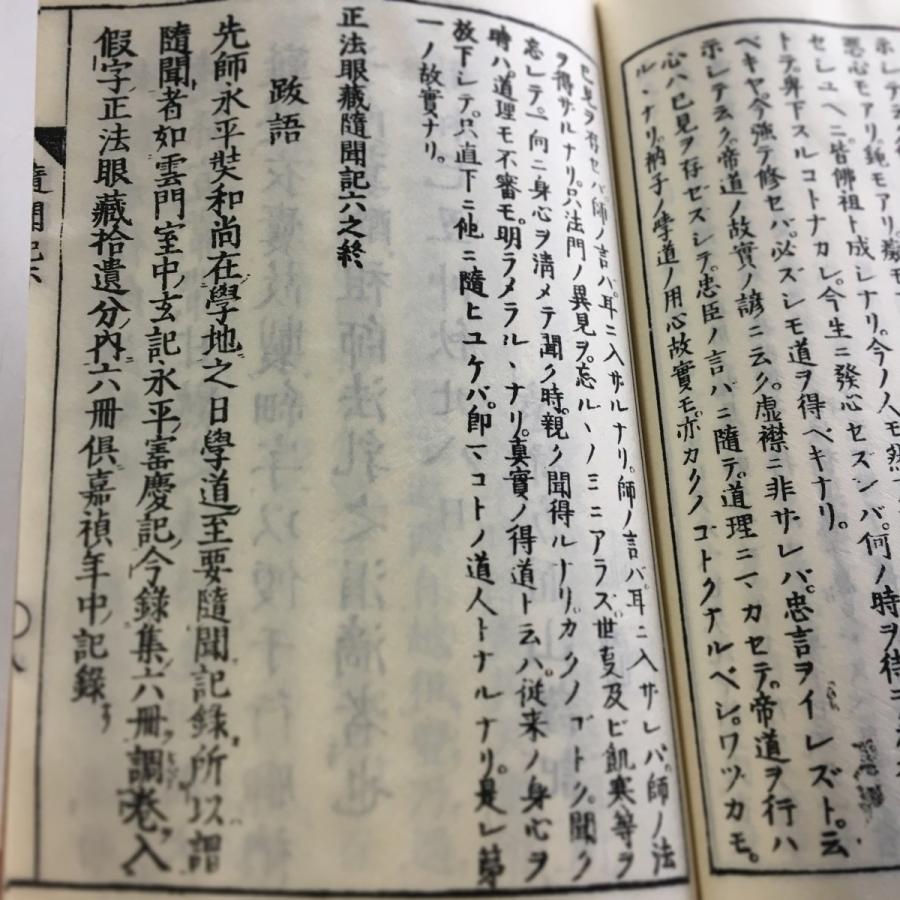 悪心モアリ。鈍モアリ。癡モ
セシユヘニ。皆佛祖ト成シナリ。今ノ人モ然
トテ。卑下スルコトナカレ。今生ニ發心セズンバ。何ノ時ヲ待
ベキヤ。今強テ修セバ。必ズシモ道ヲ得ベキナリ。
示シテ云ク。帝道ノ故實ノ諺ニ云ク。虚襟ニ非サレバ。忠言ヲイレズト。云
心ハ己見ヲ存ゼズシテ。忠臣ノ言バニ隨テ。道理ニマカセテ。帝道ヲ行ハ
ルヽナリ。衲子ノ學道ノ用心故實モ。亦カクノコトクナルベシ。ワヅカモ。
己見ヲ存セバ。師ノ言バ。耳ニ入サルナリ。師ノ言バ耳ニ入ザレバ。師ノ法
ヲ得ザルナリ。只法門ノ異見ヲ。忘ルヽノミニアラズ。世叓及ビ飢寒等ヲ
忘レテ。一向ニ身心ヲ清メテ聞ク時。親ク聞得ルナリ。カクノゴトク。聞ク
時ハ。道理モ不審モ。明ラメラルヽナリ。真實ノ得道ト云ハ。従来ノ身心ヲ
放下シテ。只直下ニ他ニ隨ヒユケバ。即マコトノ道人トナルナリ。是レ第
一ノ故實ナリ。
正法眼藏隨聞記六之終
跋語
先師永平奘和尚在學地之日學道至要隨聞記録所以謂
隨聞者如雲門室中玄記永平寳慶記今録集六冊調巻入
假字正法眼藏拾遺分内六冊倶嘉禎年中記録
隨聞記六